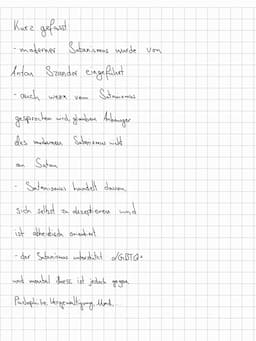 Kurz gefasst
- moderner Satanismus wurde von
Anton Szandor eingeführt
- auch wenn vom Satanismus
gesprochen wird, glauben Anhänger
des modernen Satanismus nicht
an Satan
- Satanismus handelt davon
sich selbst zu akzeptieren und
ist atheistisch orientiert
- der Satanismus unterstützt LGBTQ+
und mental illness ist jedoch gegen
Pädophilie, Vergewaltigung, Mord, ...